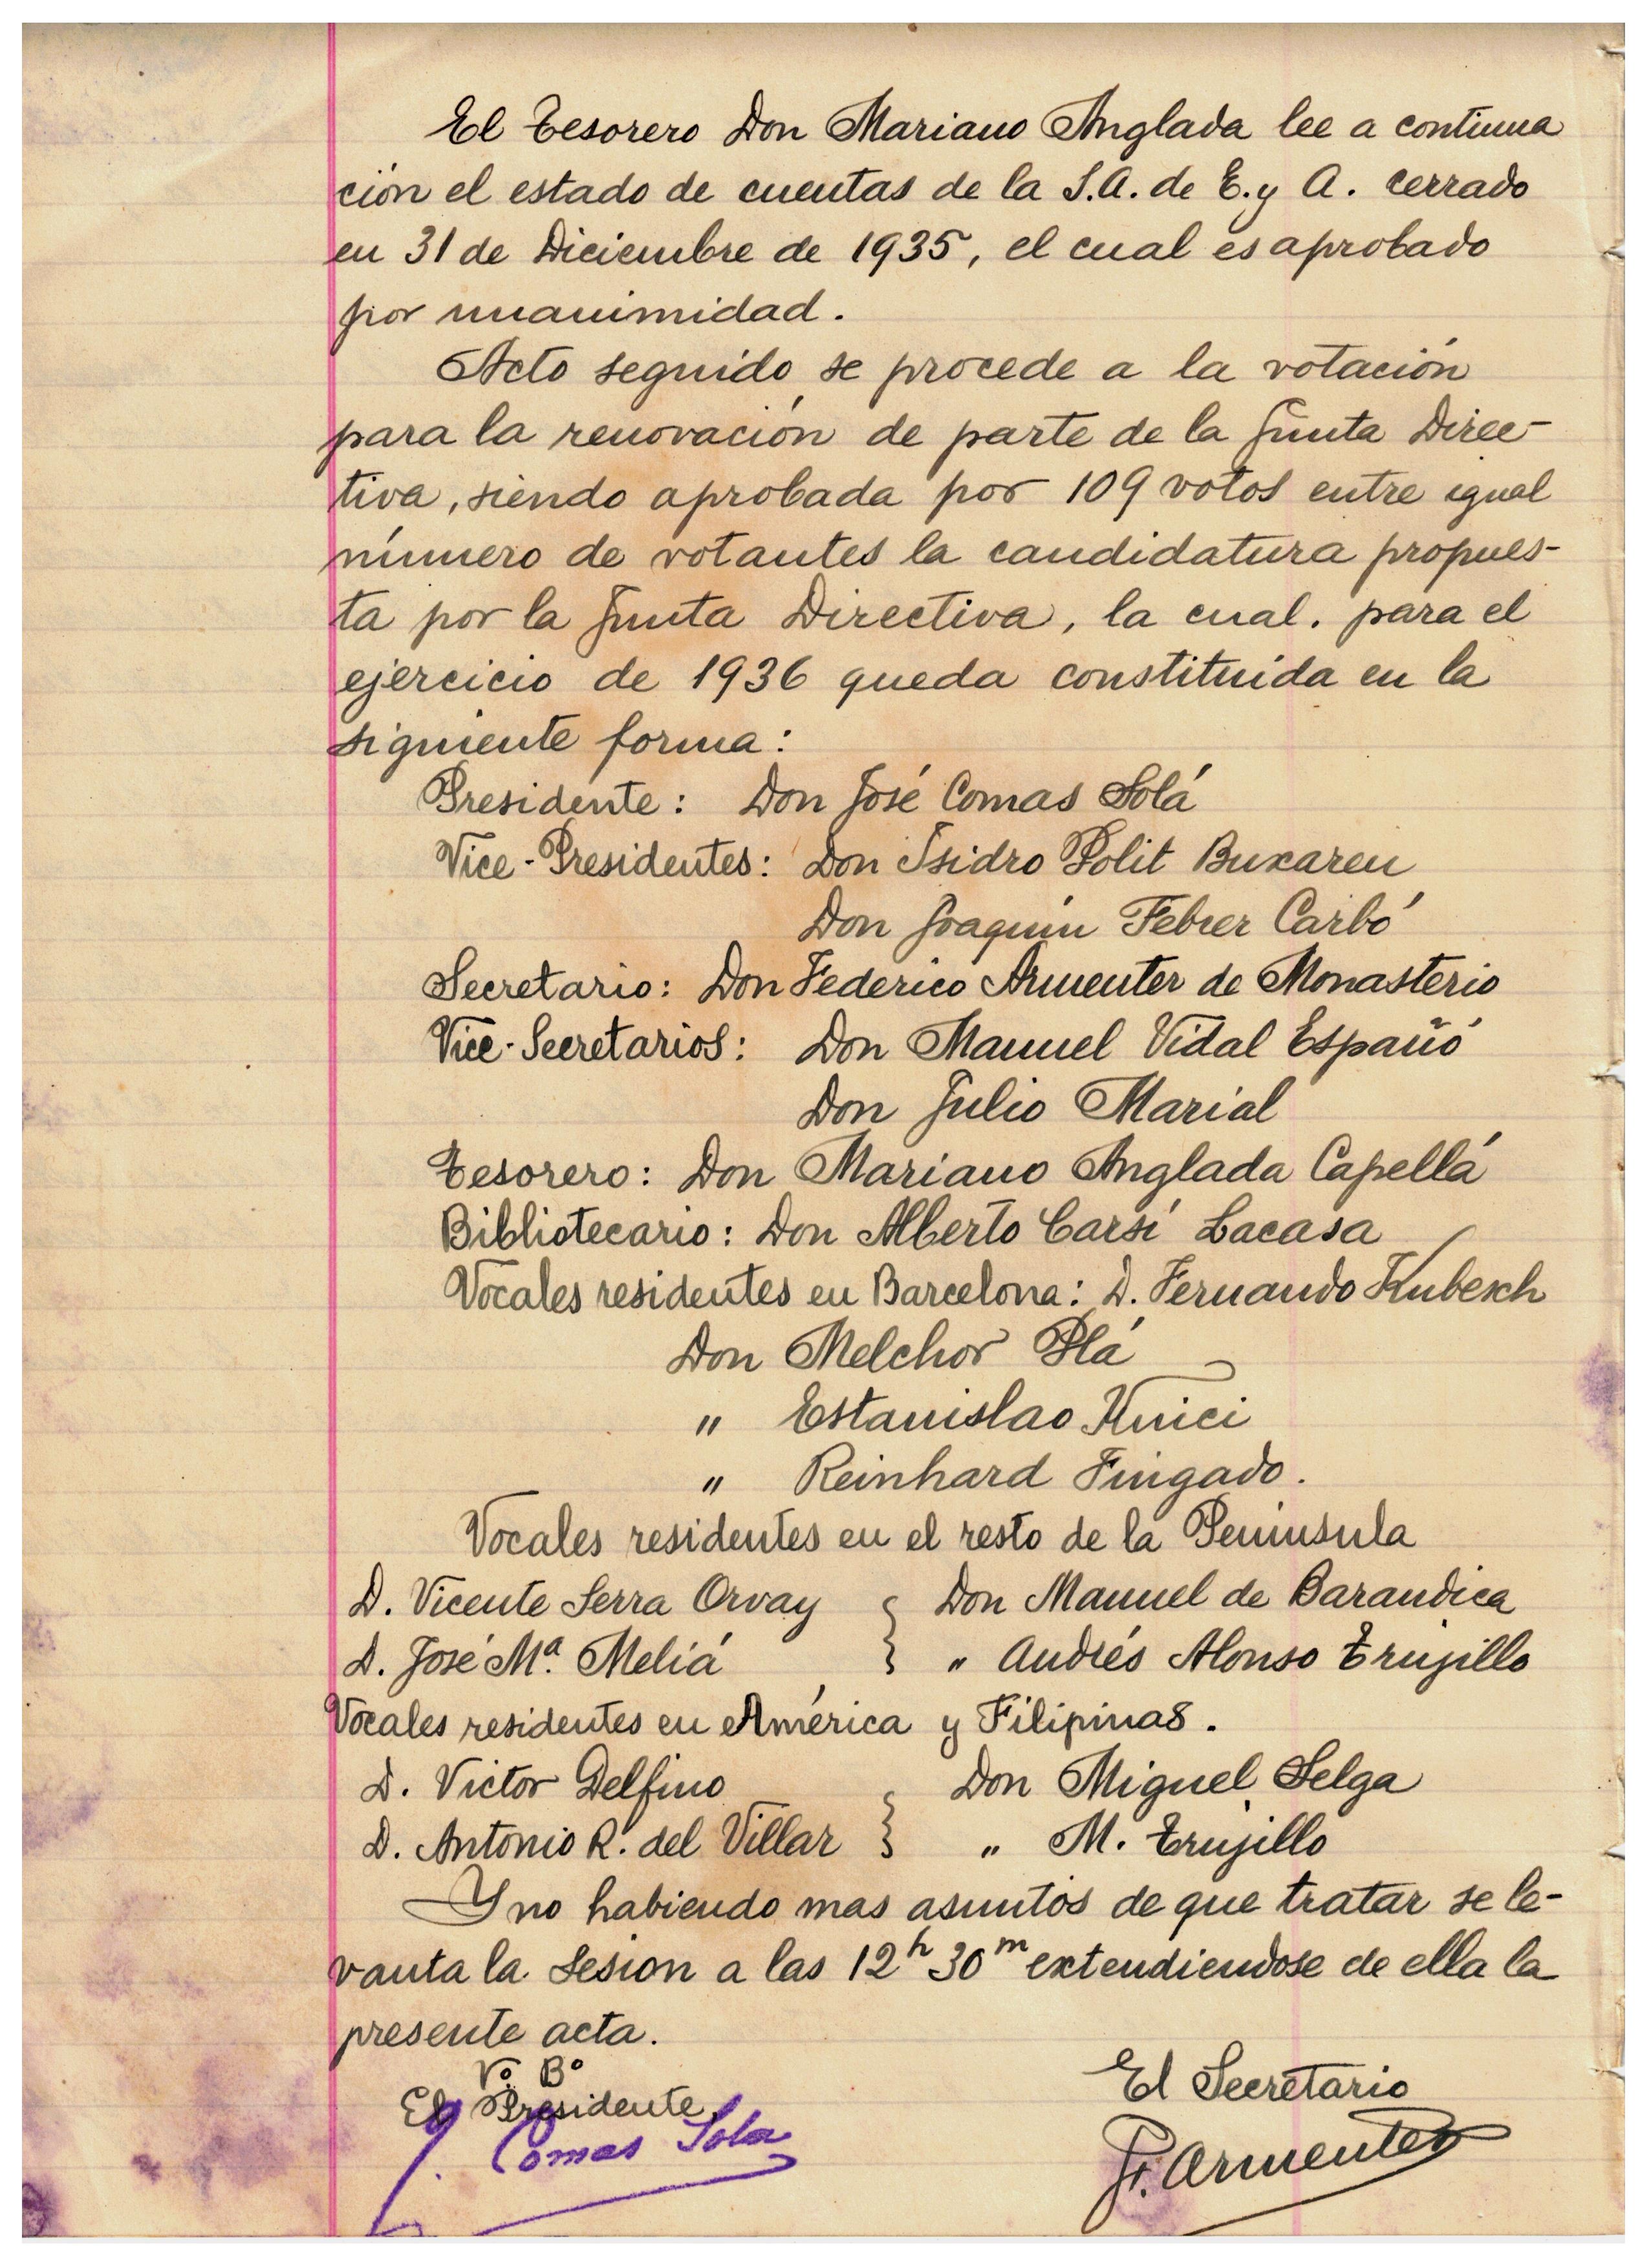 El Tesorero Don Mariano Anglada lee a continua
ción el estado de cuentas de la S.A. de E. y A. cerrado
en 31 de Diciembre de 1935, el cual es aprobado
por unanimidad.
Acto seguido se procede a la votación
para la renovación de parte de la Junta Direc-
tiva, siendo aprobada por 109 votos entre igual
número de votantes la candidatura propues-
ta por la Junta Directiva, la cual. para el
ejercicio de 1936 queda constituída en la
siguiente forma:
Presidente: Don José Comas Solá
Vice-Presidentes: Don Isidro Polit Buxareu
Don Joaquín Febrer Carbó
Secretario: Don Federico Armenter de Monasterio
Vice-Secretarios: Don Manuel Vidal Españó
Don Julio Marial
Tesorero: Don Mariano Anglada Capellá
Bibliotecario: Don Alberto Carsí Lacasa
Vocales residentes en Barcelona: D. Fernando Kubesch
Don Melchor Plá
" Estanislao Kinici
" Reinhard Fingado.
Vocales residentes en el resto de la Península
D. Vicente Serra Orvay } Don Manuel de Barandica
D. José Mª. Meliá } " Andrés Alonso Trujillo
Vocales residentes en América y Filipinas.
D. Victor Delfino } Don Miguel Selga
D. Antonio R. del Villar } " M. Trujillo
Y no habiendo mas asuntos de que tratar se le-
vanta la sesion a las 12h 30m extendiendose de ella la
presente acta.
Vº. Bº
El Presidente,
J. Comas Solá
El Secretario
F. Armenter